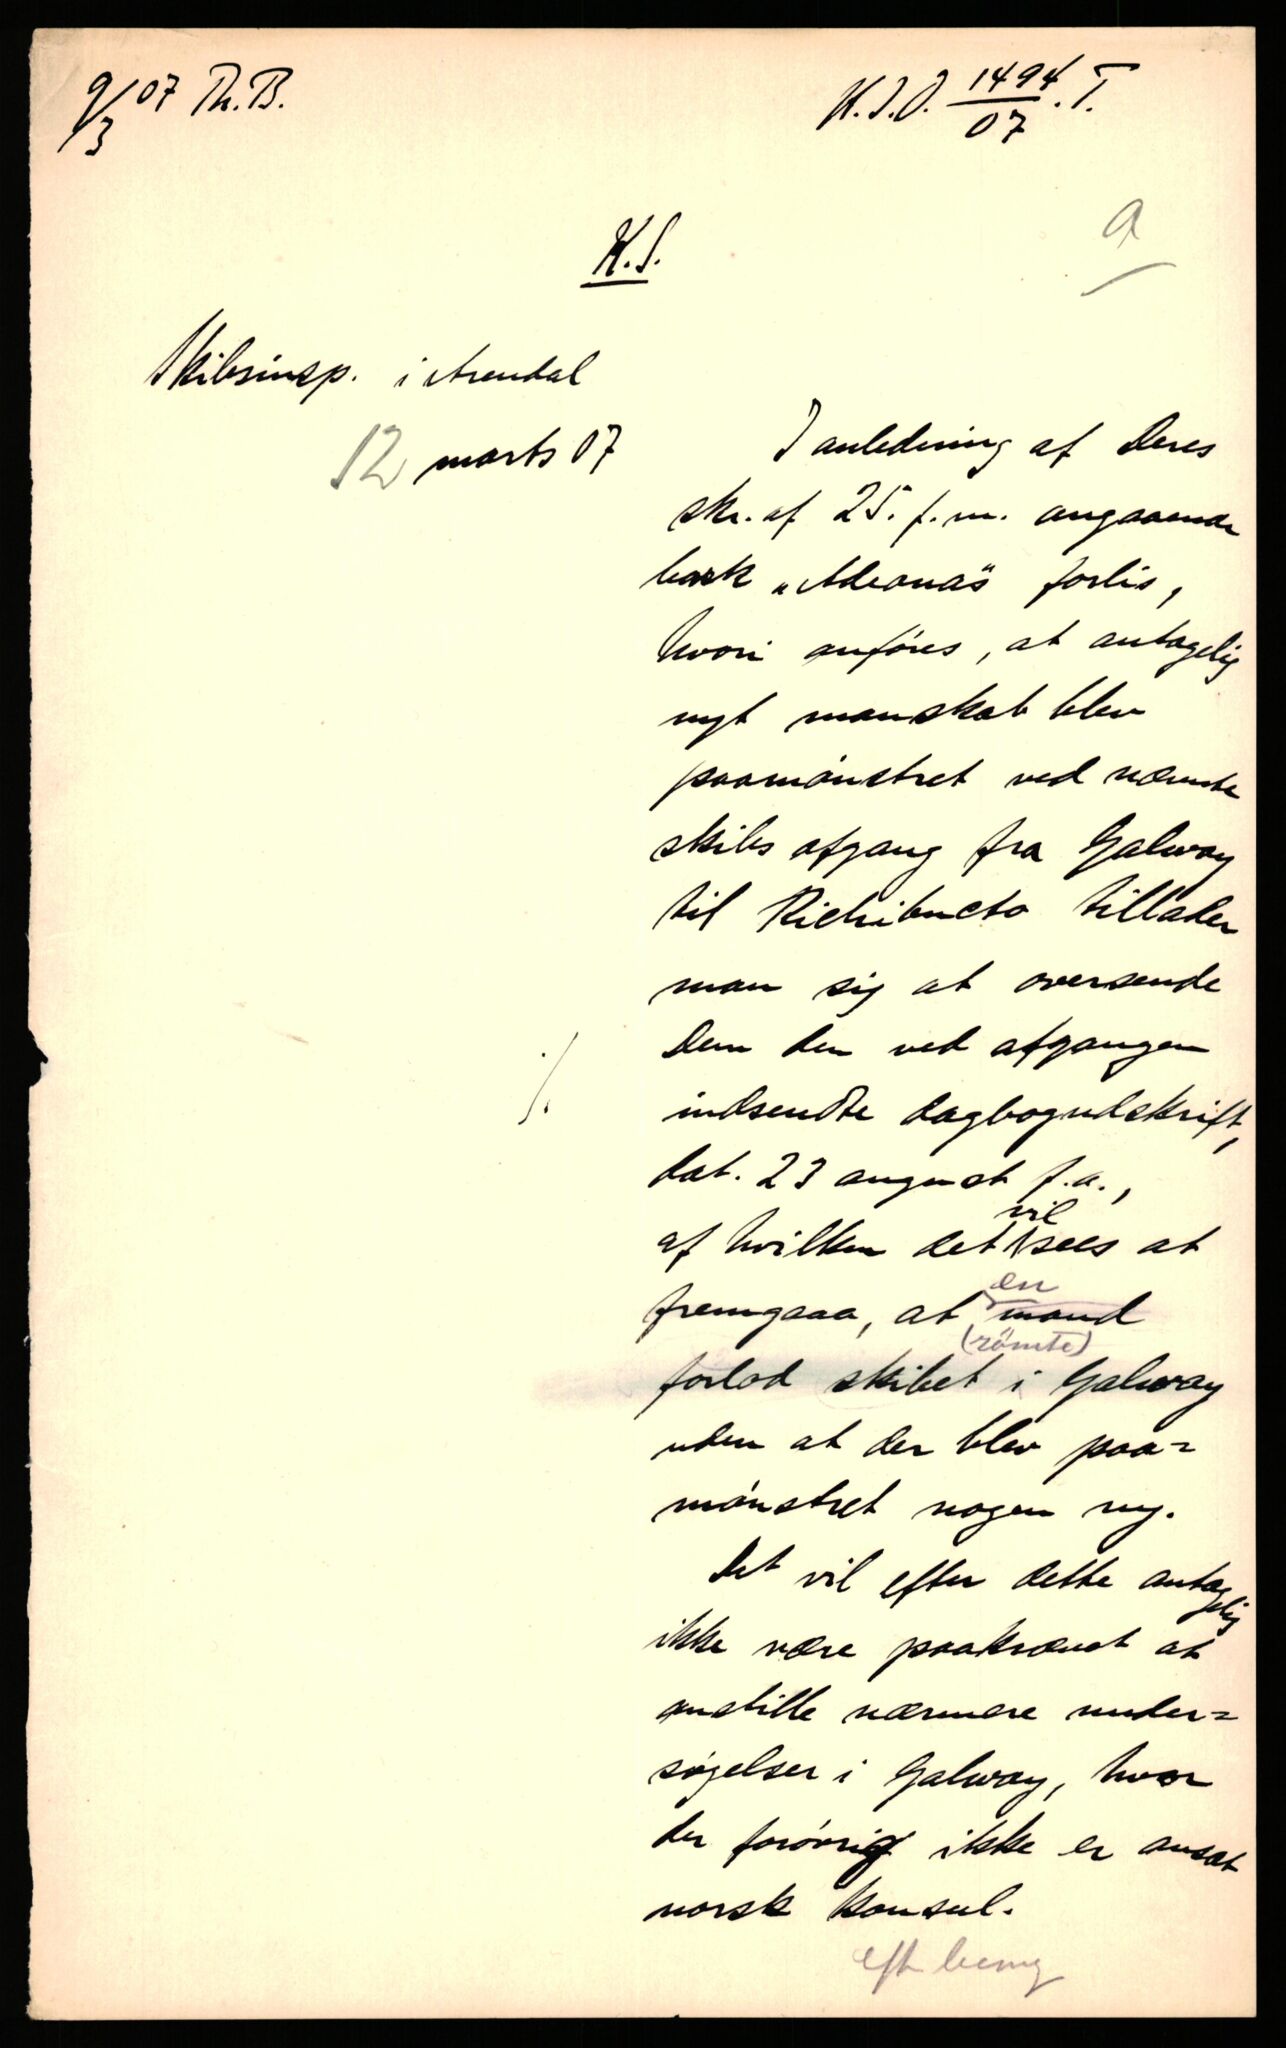 9/3 07 Th. B.
H.I.O. 1494/07. T.
a
H.S.
Skibsinsp. i Arendal
12 marts 07
I anledning af Deres
skr. af 25. f. m. angaaende
bark „Adeona"s forlis,
hvori anføres, at antagelig
nyt manskab blev
paamönstret ved nævnte
skibs afgang fra Galway
til Richibucto tillader
man sig at oversende
Dem den ved afgangen
./. indsendte dagbogudskrift,
dat. 23 august f. a.,
af hvilken det vil sees at
fremgaaa, at en mand
(römte)
forlod skibet i Galway
uden at der blev paa=
mönstret nogen ny.
Det vil efter dette antagelig
ikke være paakrævet at
anstille nærmere under=
søgelser i Galway, hvor
der forövrig ikke er ansat
norsk konsul.